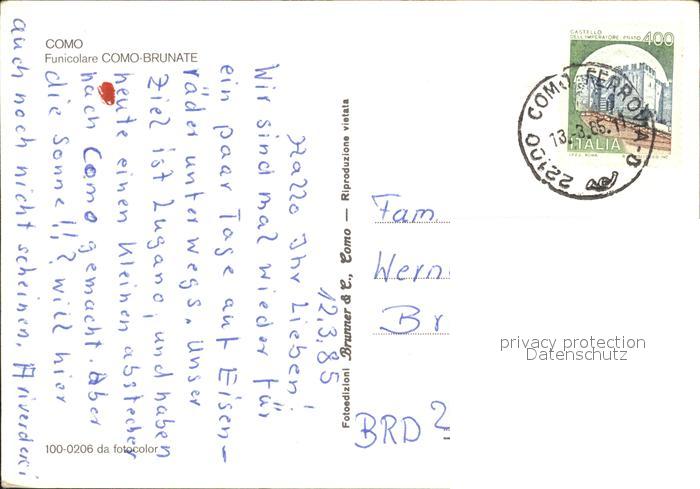 COMO
Funicolare COMO-BRUNATE
12.3.85
Hallo Ihr Lieben!
Wir sind mal wieder für
ein paar Tage auf Eisen-
räder unterwegs. Unser
Ziel ist Lugano, und haben
heute einen kleinen abstecher
nach Como gemacht. Aber
die Sonne !!,? will hier
auch noch nicht scheinen. Ariverderci
100-0206 da fotocolor
Fotoedizioni Brunner & C., Como — Riproduzione vietata
CASTELLO
DELL'IMPERATORE · PRATO
400
ITALIA
22100 COMO FERROVIA-D
13.-3.85.-11
Fam.
Wern
Br
BRD 2
privacy protection
Datenschutz